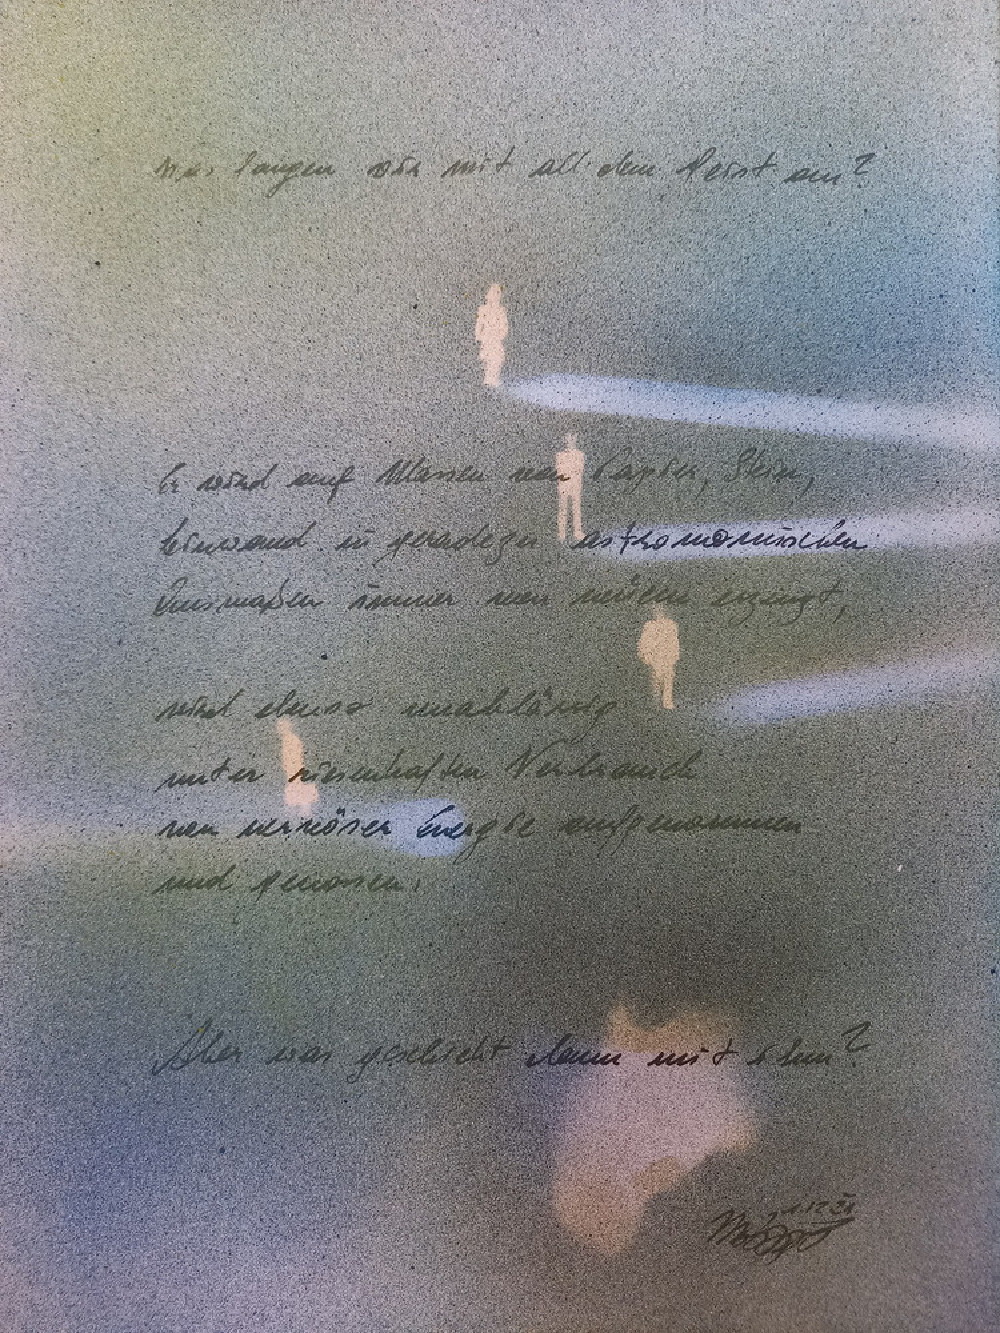 Was fangen wir mit all dem Geist an?
Er wird auf Massen von Papier, Stein,
Leinwand in geradezu astronomischen
Ausmaßen immer von neuem erzeugt,
wird ebenso unablässig
unter riesenhaftem Verbrauch
von nervöser Energie aufgenommen
und genossen.
Aber was geschieht dann mit ihm?